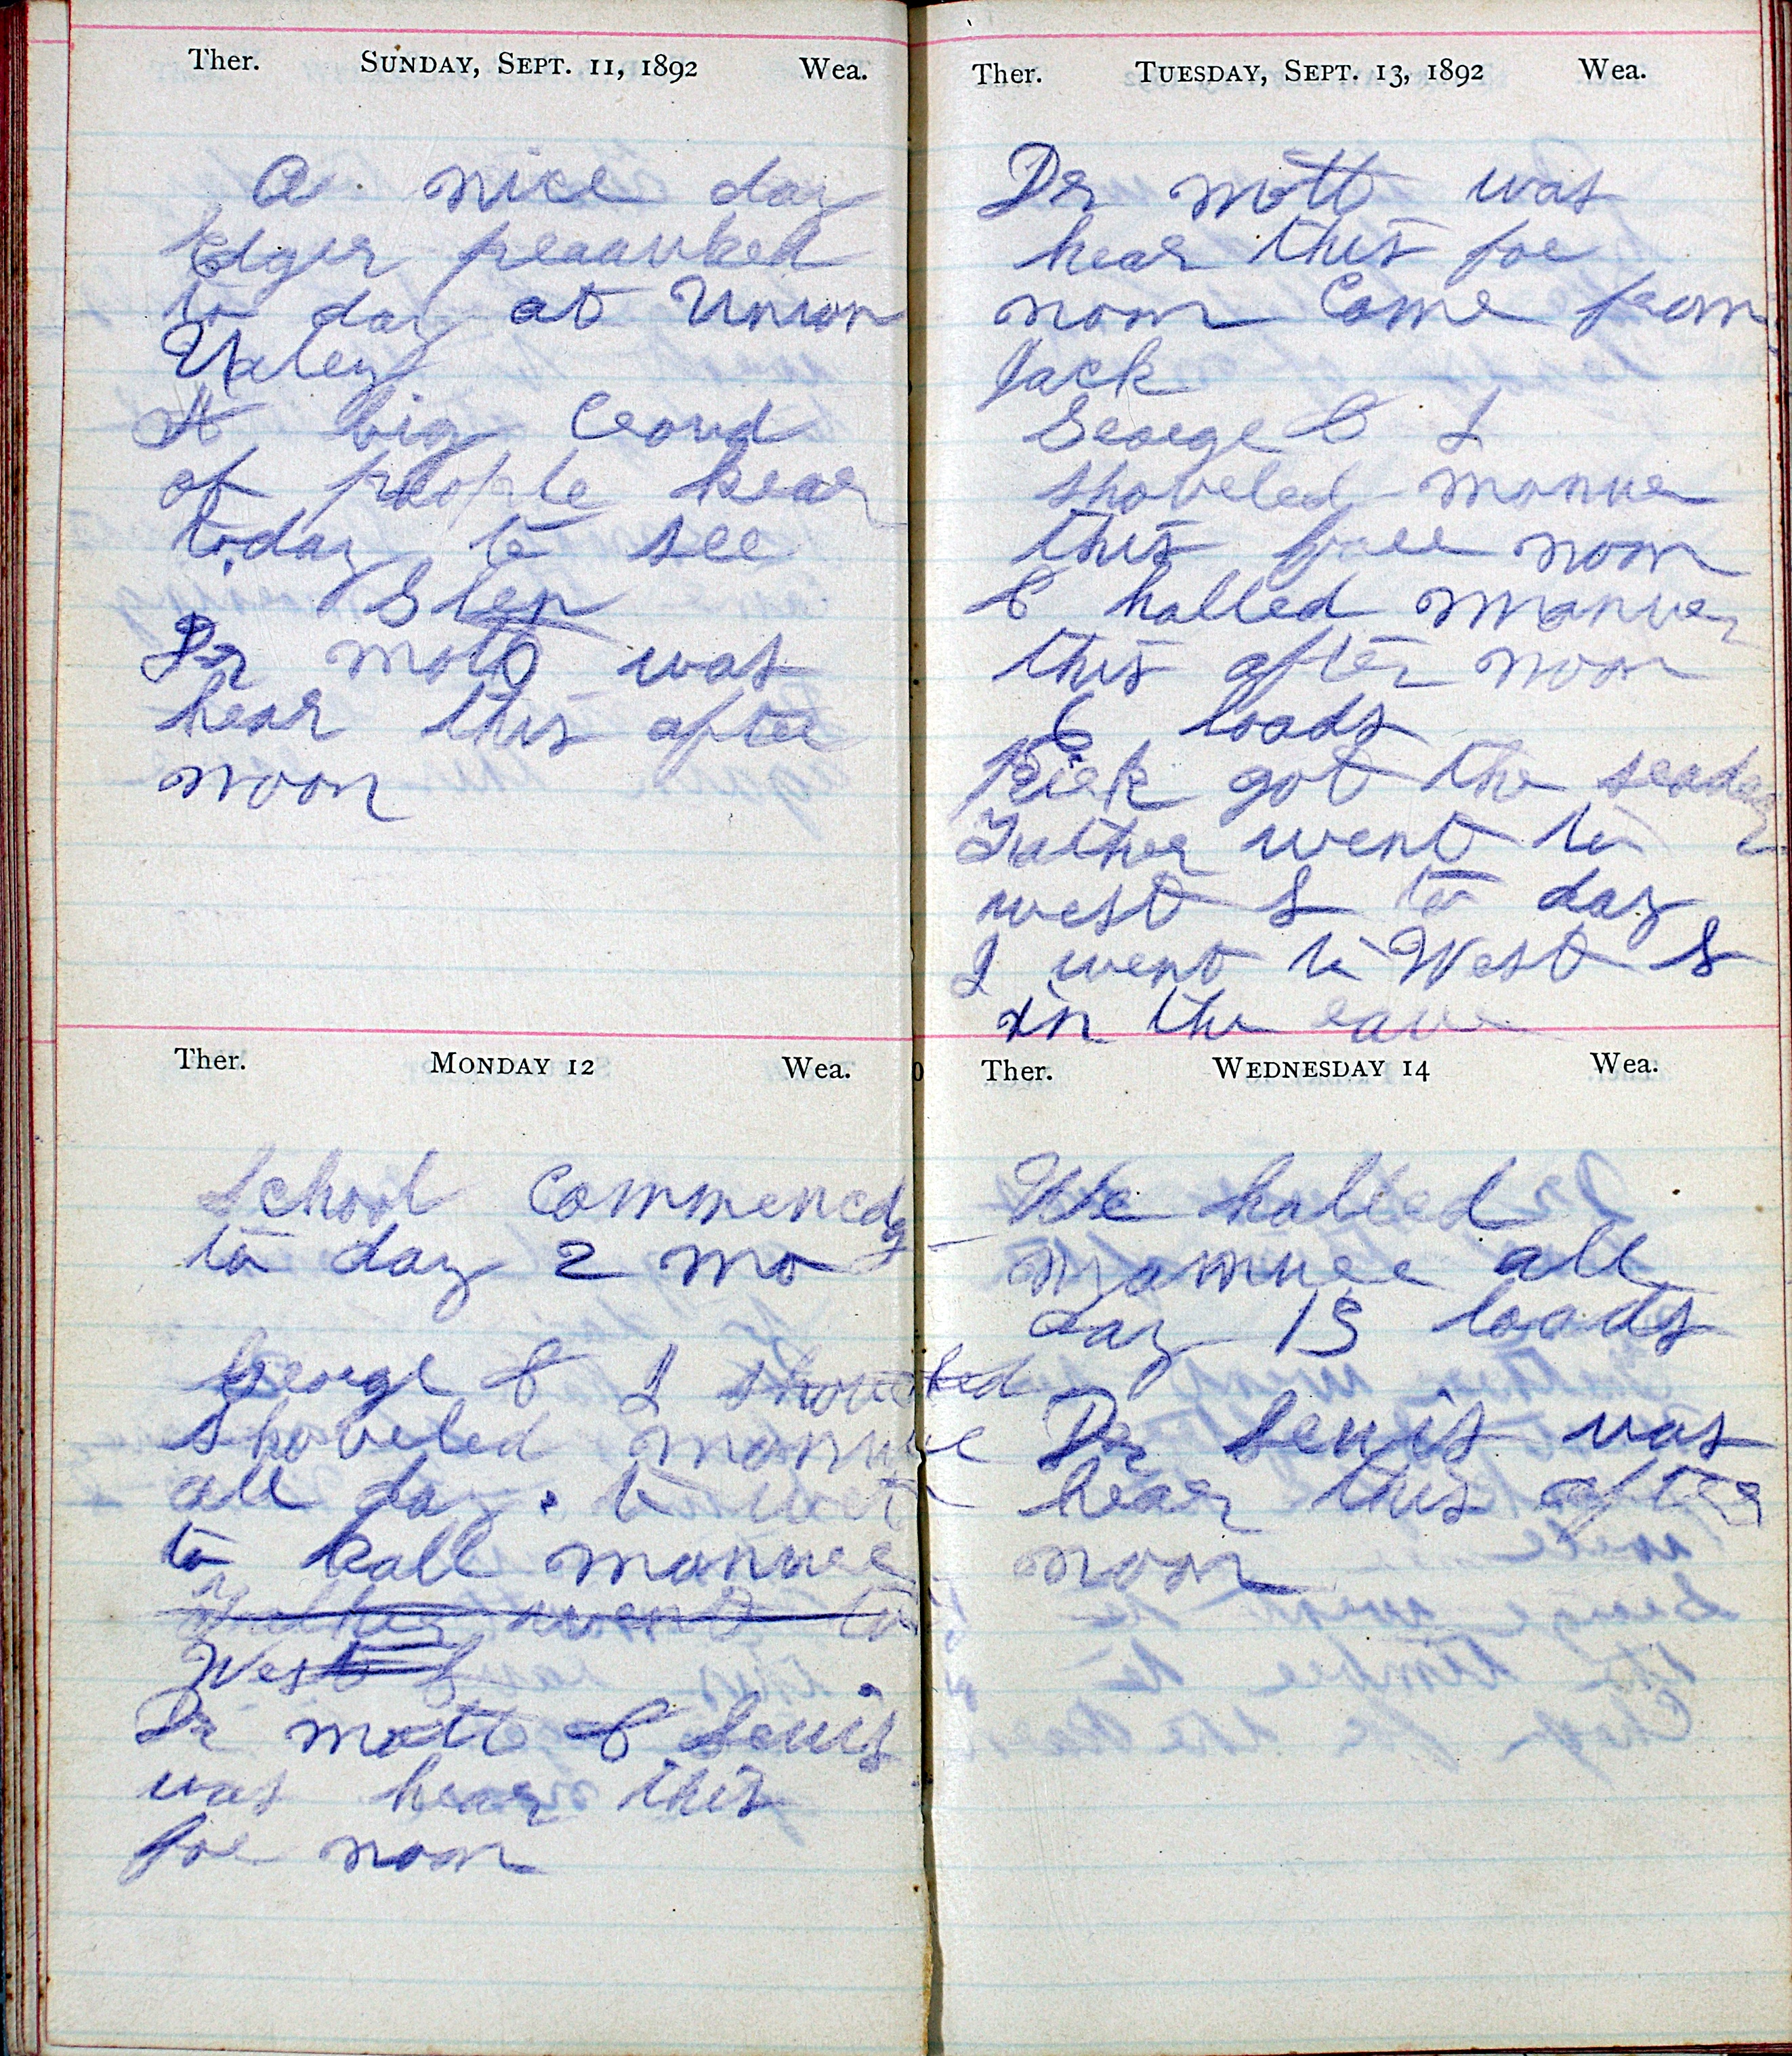 Ther. SUNDAY, SEPT. 11, 1892 Wea.
A nice day
Edger preauched
to day at Union
Valey
A big Croud
of people hear
today to see
Glen
Dr Mott was
hear this after
noon
Ther. MONDAY 12 Wea.
School Commencd
to day 2 mo
George & I shoveled
shoveled manure
all day. to wet
to hall manure
Father went to
West S
Dr Mott & Lewis
was hear this
foe noon
Ther. TUESDAY, SEPT. 13, 1892 Wea.
Dr Mott was
hear this foe
noon Come from
Jack
George & I
shoveled manure
this foree noon
& halled manure
this after noon
6 loads
Rick got the
Father went to
west S to day
I went to West S
in the eave
Ther. WEDNESDAY 14 Wea.
We halled
manure all
day 15 loads
Dr Lewis was
hear this after
noon